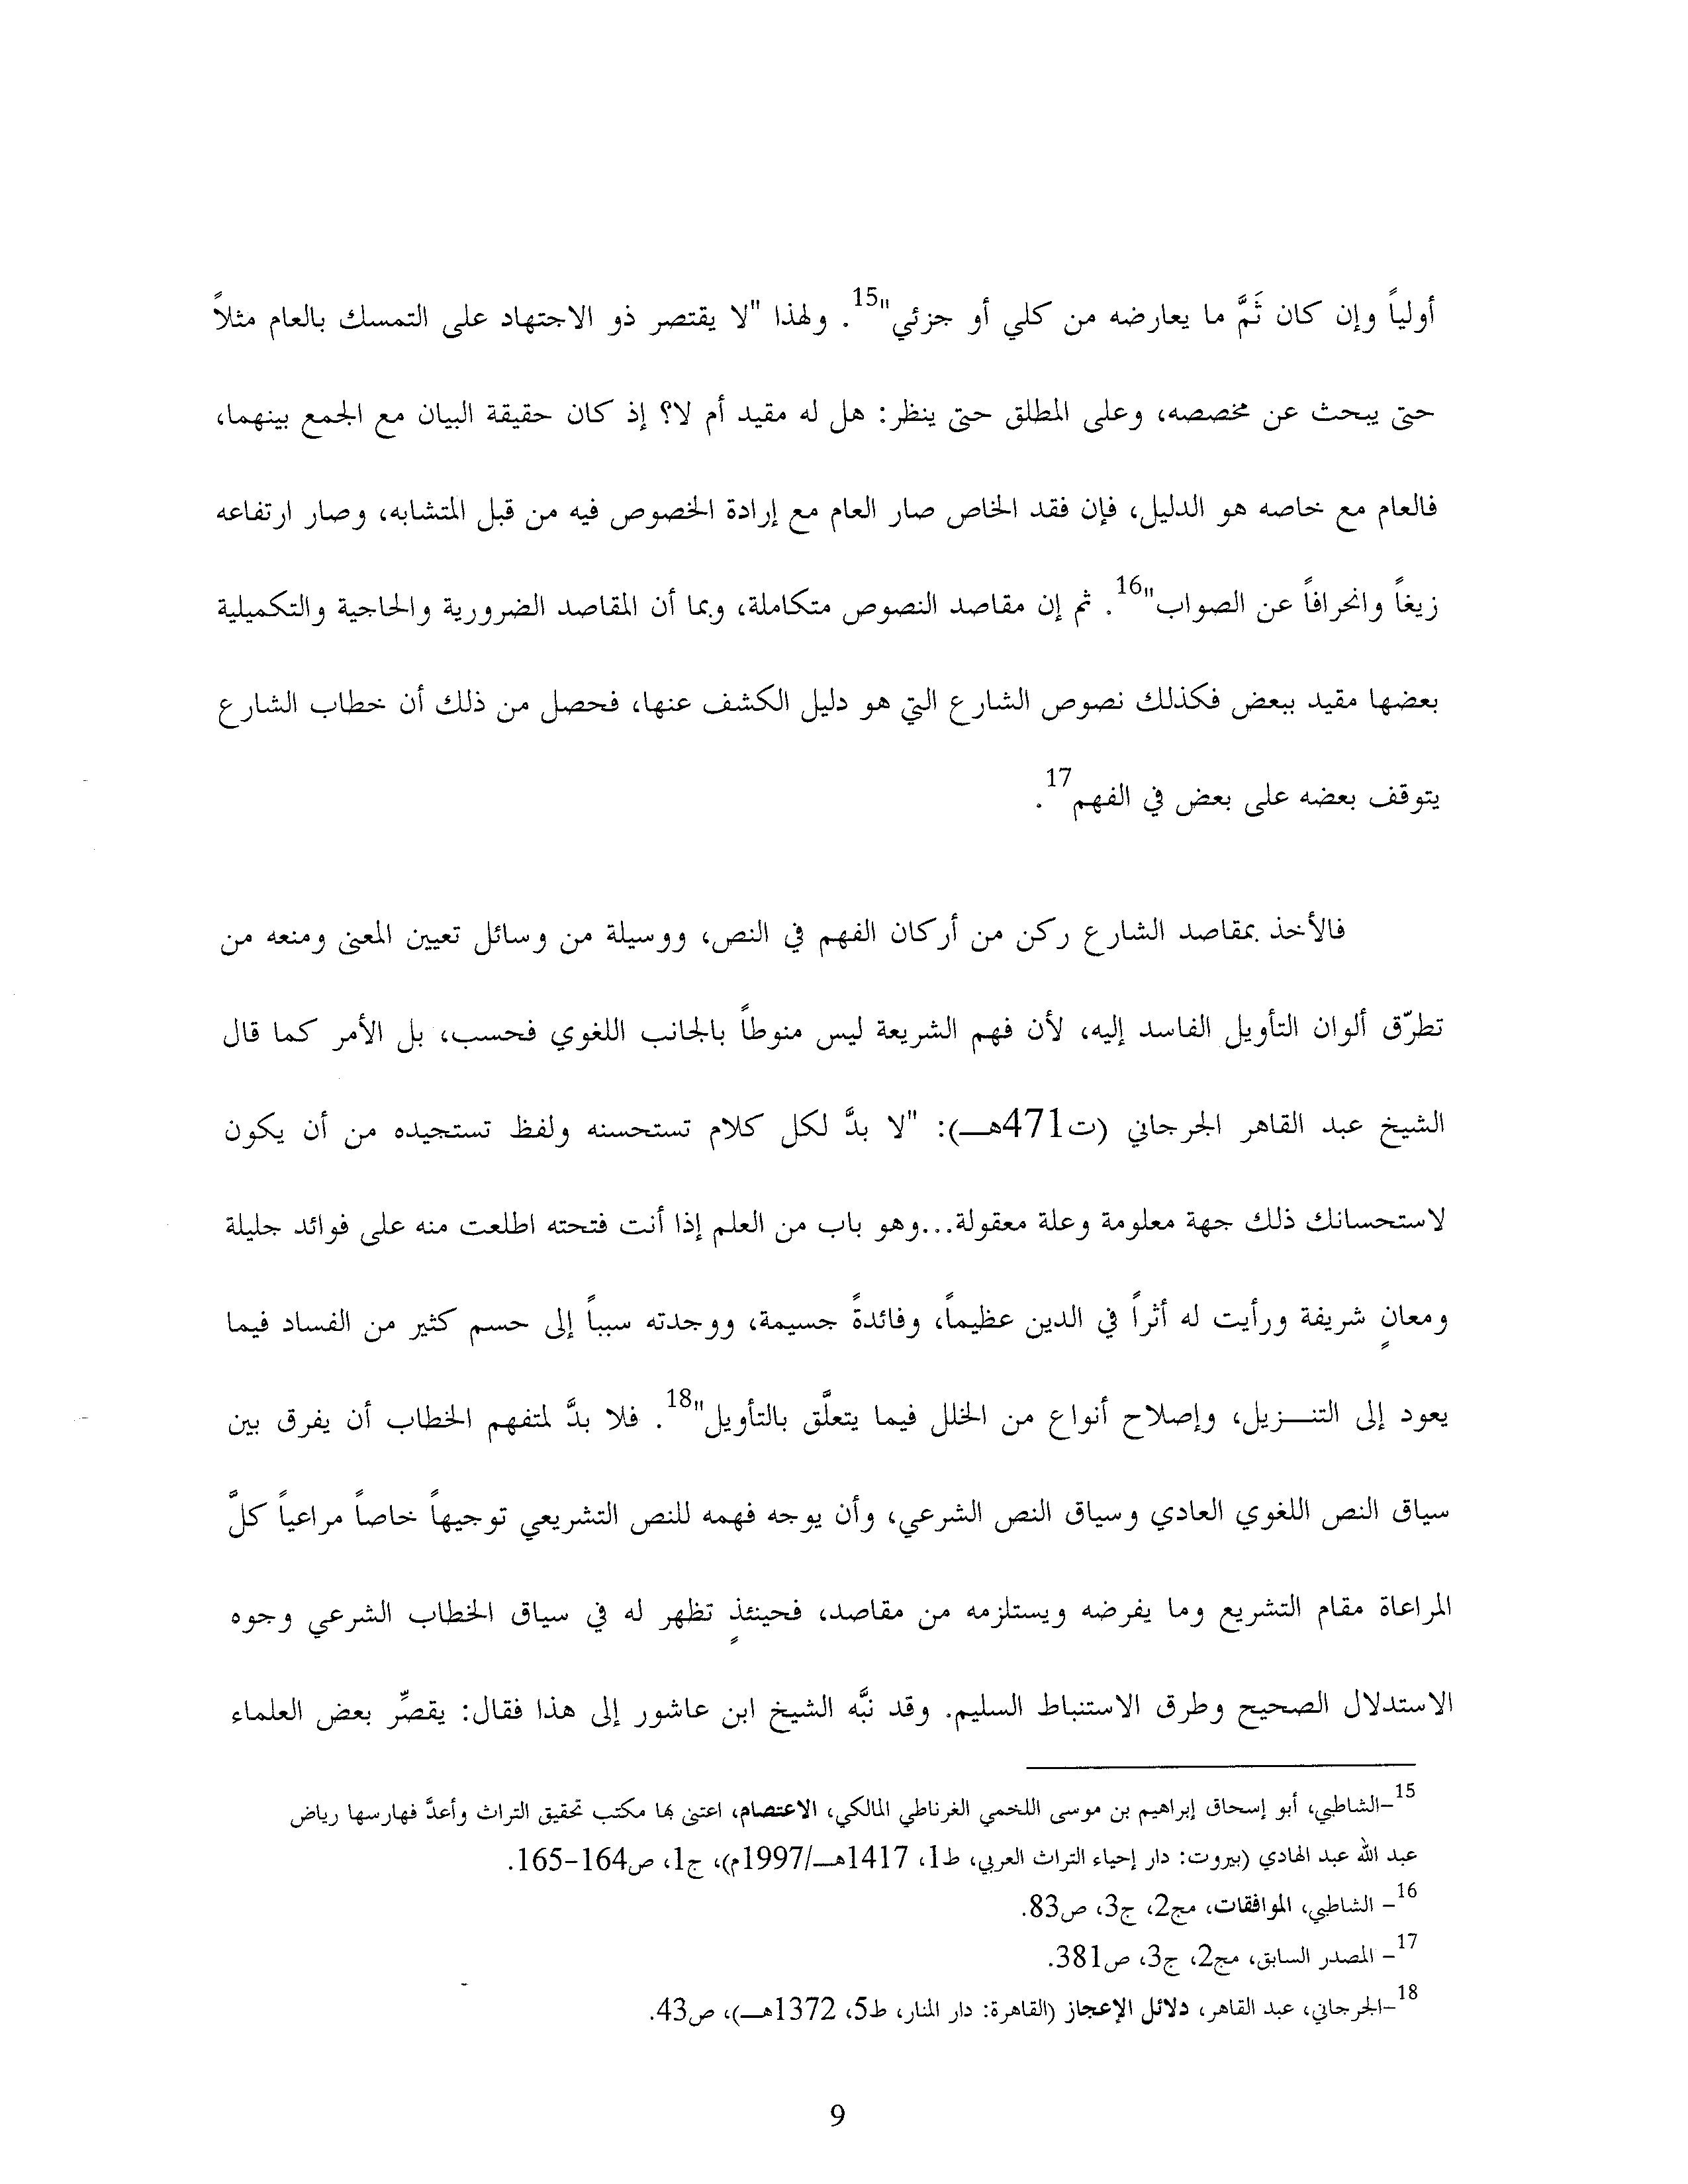 أولياً وإن كان ثَمَّ ما يعارضه من كلي أو جزئي"15. ولهذا "لا يقتصر ذو الاجتهاد على التمسك بالعام مثلاً
حتى يبحث عن مخصصه، وعلى المطلق حتى ينظر: هل له مقيد أم لا؟ إذ كان حقيقة البيان مع الجمع بينهما،
فالعام مع خاصه هو الدليل، فإن فقد الخاص صار العام مع إرادة الخصوص فيه من قبل المتشابه، وصار ارتفاعه
زيغاً وانحرافاً عن الصواب"16. ثم إن مقاصد النصوص متكاملة، وبما أن المقاصد الضرورية والحاجية والتكميلية
بعضها مقيد ببعض فكذلك نصوص الشارع التي هو دليل الكشف عنها، فحصل من ذلك أن خطاب الشارع
يتوقف بعضه على بعض في الفهم17.
فالأخذ بمقاصد الشارع ركن من أركان الفهم في النص، ووسيلة من وسائل تعيين المعنى ومنعه من
تطرّق ألوان التأويل الفاسد إليه، لأن فهم الشريعة ليس منوطاً بالجانب اللغوي فحسب، بل الأمر كما قال
الشيخ عبد القاهر الجرجاني (ت471هـ): "لا بدَّ لكل كلام تستحسنه ولفظ تستجيده من أن يكون
لاستحسانك ذلك جهة معلومة وعلة معقولة...وهو باب من العلم إذا أنت فتحته اطلعت منه على فوائد جليلة
ومعانٍ شريفة ورأيت له أثراً في الدين عظيماً، وفائدةً جسيمة، ووجدته سبباً إلى حسم كثير من الفساد فيما
يعود إلى التنـزيل، وإصلاح أنواع من الخلل فيما يتعلَّق بالتأويل"18. فلا بدَّ لمتفهم الخطاب أن يفرق بين
سياق النص اللغوي العادي وسياق النص الشرعي، وأن يوجه فهمه للنص التشريعي توجيهاً خاصاً مراعياً كلَّ
المراعاة مقام التشريع وما يفرضه ويستلزمه من مقاصد، فحينئذٍ تظهر له في سياق الخطاب الشرعي وجوه
الاستدلال الصحيح وطرق الاستنباط السليم. وقد نبَّه الشيخ ابن عاشور إلى هذا فقال: يقصِّر بعض العلماء
15-الشاطبي، أبو إسحاق إبراهيم بن موسى اللخمي الغرناطي المالكي، الاعتصام، اعتنى بها مكتب تحقيق التراث وأعدَّ فهارسها رياض
عبد الله عبد الهادي (بيروت: دار إحياء التراث العربي، ط1، 1417هـ/1997م)، ج1، ص164-165.
16- الشاطبي، الموافقات، مج2، ج3، ص83.
17- المصدر السابق، مج2، ج3، ص381.
18-الجرجاني، عبد القاهر، دلائل الإعجاز (القاهرة: دار المنار، ط5، 1372هـ)، ص43.
9